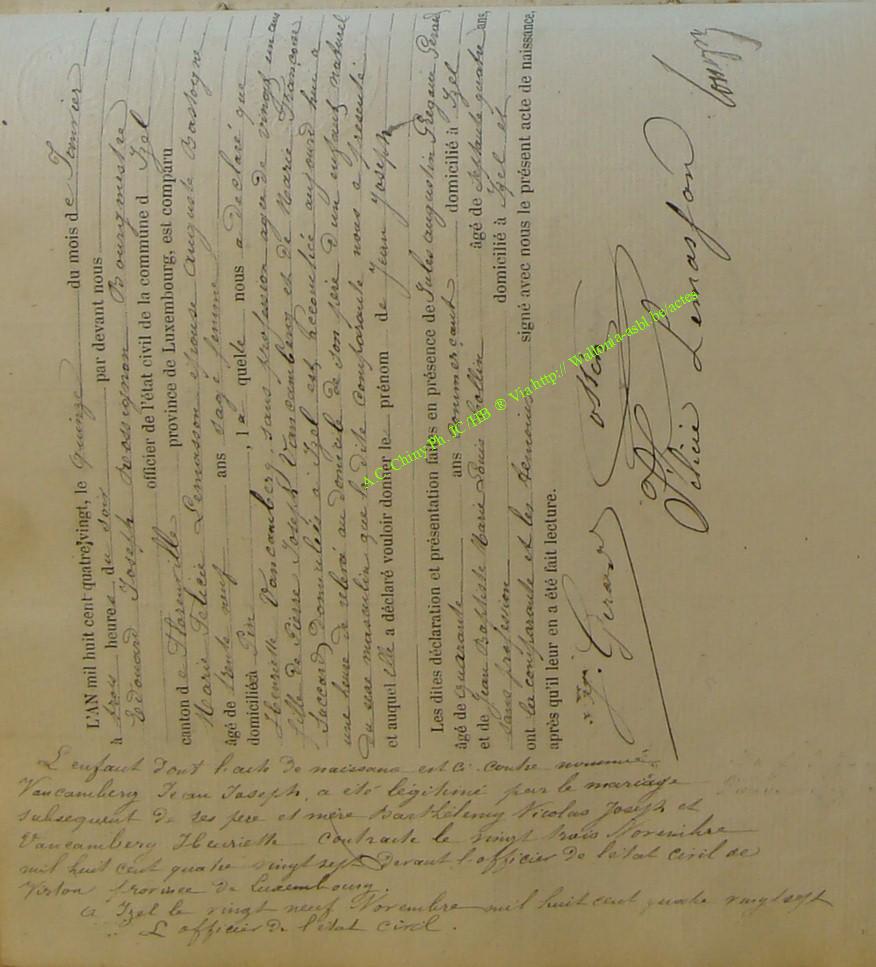 L'AN mil huit cent quatre-vingt, le quinze du mois de Janvier
à trois heures du soir par devant nous
Edouard Joseph Rossignon Bourgmestre
officier de l'état civil de la commune d Izel
canton de Florenville province de Luxembourg, est comparu
Marie Felicie Lemasson épouse Auguste Bastogne
âgé de trente neuf ans sage femme
domiciliéà Pin , la quelle nous a déclaré que
Henriette Vancamberg, sans profession agee de vingt un ans
fille de Pierre Joseph Vancamberg et de Marie Françoise
Saccard domiciliée à Izel est accouchée aujourd'hui a
une heure de relevé au domicile de son père d'un enfant naturel
du sexe masculin que la dite comparante nous a présenté
et auquel elle a déclaré vouloir donner le prénom de Jean Joseph
Les dites déclaration et présentation faites en présence de Jules augustin Grégoire Gerard
âgé de quarante ans commerçant domicilié à Izel
et de Jean Baptiste Marie Louis Collin âgé de septante quatre ans,
sans profession domicilié à Izel et
ont la comparante et les temoins signé avec nous le présent acte de naissance,
après qu'il leur en a été fait lecture.
J. Gerard
Félicie Lemasson
L'enfant dont l'acte de naissance est ci contre nommé
Vancamberg Jean Joseph, a été légitimé par le mariage
subsequent de ses père et mère Barthélemy Nicolas Joseph et
Vancamberg Henriette contracté le vingt trois Novembre
mil huit cent quatre vingt sept devant l'officier de l'état civil de
Virton province de Luxembourg.
a Izel le vingt neuf Novembre mil huit cent quatre vingt sept
L'officier de l'état civil.
A.G.Chiny.Ph. JC/HB ® Via http:// Wallonia-asbl.be/actes